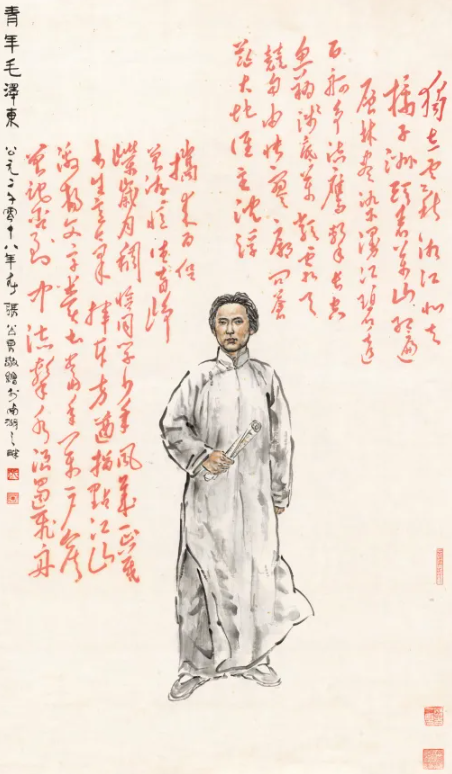 獨立寒秋湘江北去
橘子洲頭看萬山紅遍
層林盡染漫江碧透
百舸争流鷹擊長空
魚翔淺底萬類霜天
競自由悵寥廓問蒼
茫大地誰主沈浮
攜來百侣
曾游憶往昔崢
嶸歲月稠恰同學少年風華正茂
書生意氣揮斥方遒指點江山
激揚文字糞土當年萬户侯
曾記否到中流擊水浪遏飛舟
青年毛澤東
公元二千零十八年春張公男敬繪於南湖之畔